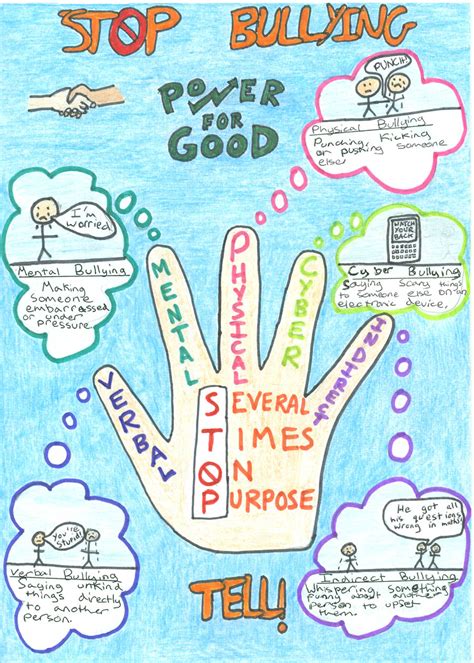 STOP BULLYING
POWER
FOR
GOOD
PUNCH!
Physical Bullying
Punching, Kicking
or pushing someone
else
I'm
worried
Mental Bullying
Making
someone
embarrassed
or under
pressure.
WATCH
YOUR
BACK
Cyber Bullying
Saying scary things
to someone else on an
electronic device,
VERBAL
MENTAL
PHYSICAL
CYBER
INDIRECT
SEVERAL
TIMES
ON
PURPOSE
You're
stupid!
Verbal Bullying
Saying unkind
things directly
to another
person.
He got all
his questions
wrong in maths!
Indirect Bullying
Whispering something
funny about another
person to upset
them.
TELL!